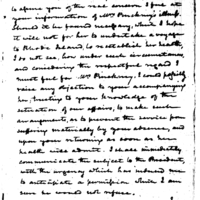 to assure you of the real concern I feel at
your information of Mrs Pinckney's illness.
Should it be found necessary, which I hope
it will not for her to undertake a voyage
to Rhode Island, to reestablish her health,
I do not see, how under such circumstances
and considering the respectful regard I
must feel for Mrs Pinckney, I could possibly
raise any objection to your accompanying
her, trusting to your knowledge of the
situation of our affairs, to make such
arrangements, as to prevent the service from
suffering materially by your absence, and
upon your returning as soon as her
health will admit. I shall immediately
communicate the subject to the President,
with the urgency which has induced me
to anticipate a permission which I am
sure he would not refuse.